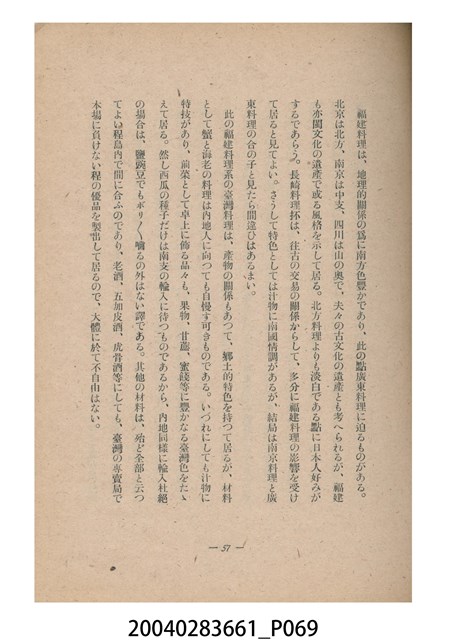 福建料理は、地理的關係の爲に南方色豐かであり、此の點廣東料理に迫るものがある。
北京は北方、南京は中支、四川は山の奧で、夫々の古文化の遺產とも考へられるが、福建
も亦閩文化の遺產で或る風格を示して居る。北方料理よりも淡白である點に日本人好みが
するであらう。長崎料理抔は、往古の交易の關係からして、多分に福建料理の影響を受け
て居ると見てよい。さうして特色としては汁物に南國情調があるが、結局は南京料理と廣
東料理の合の子と見たら間違ひはあるまい。
此の福建料理系の臺灣料理は、產物の關係もあつて、鄕土的特色を持つて居るが、材料
として蟹と海老の料理は內地人に向つても自慢す可きものである。いづれにしても汁物に
特技があり、前菜として卓上に飾る品々も、果物、甘蔗、蜜餞等に豐かなる臺灣色をたゝ
えて居る。然し西瓜の種子だけは南支の輸入に待つものであるから、內地同樣に輸入杜絕
の場合は、鹽豌豆でもポリ〳〵嚙るの外はない譯である。其他の材料は、殆ど全部と云つ
てよい程島內で間に合ふのであり、老酒、五加皮酒、虎骨酒等にしても、臺灣の專賣局で
本場に負けない程の優品を製出して居るので、大體に於て不自由はない。
— 57 —
20040283661_P069